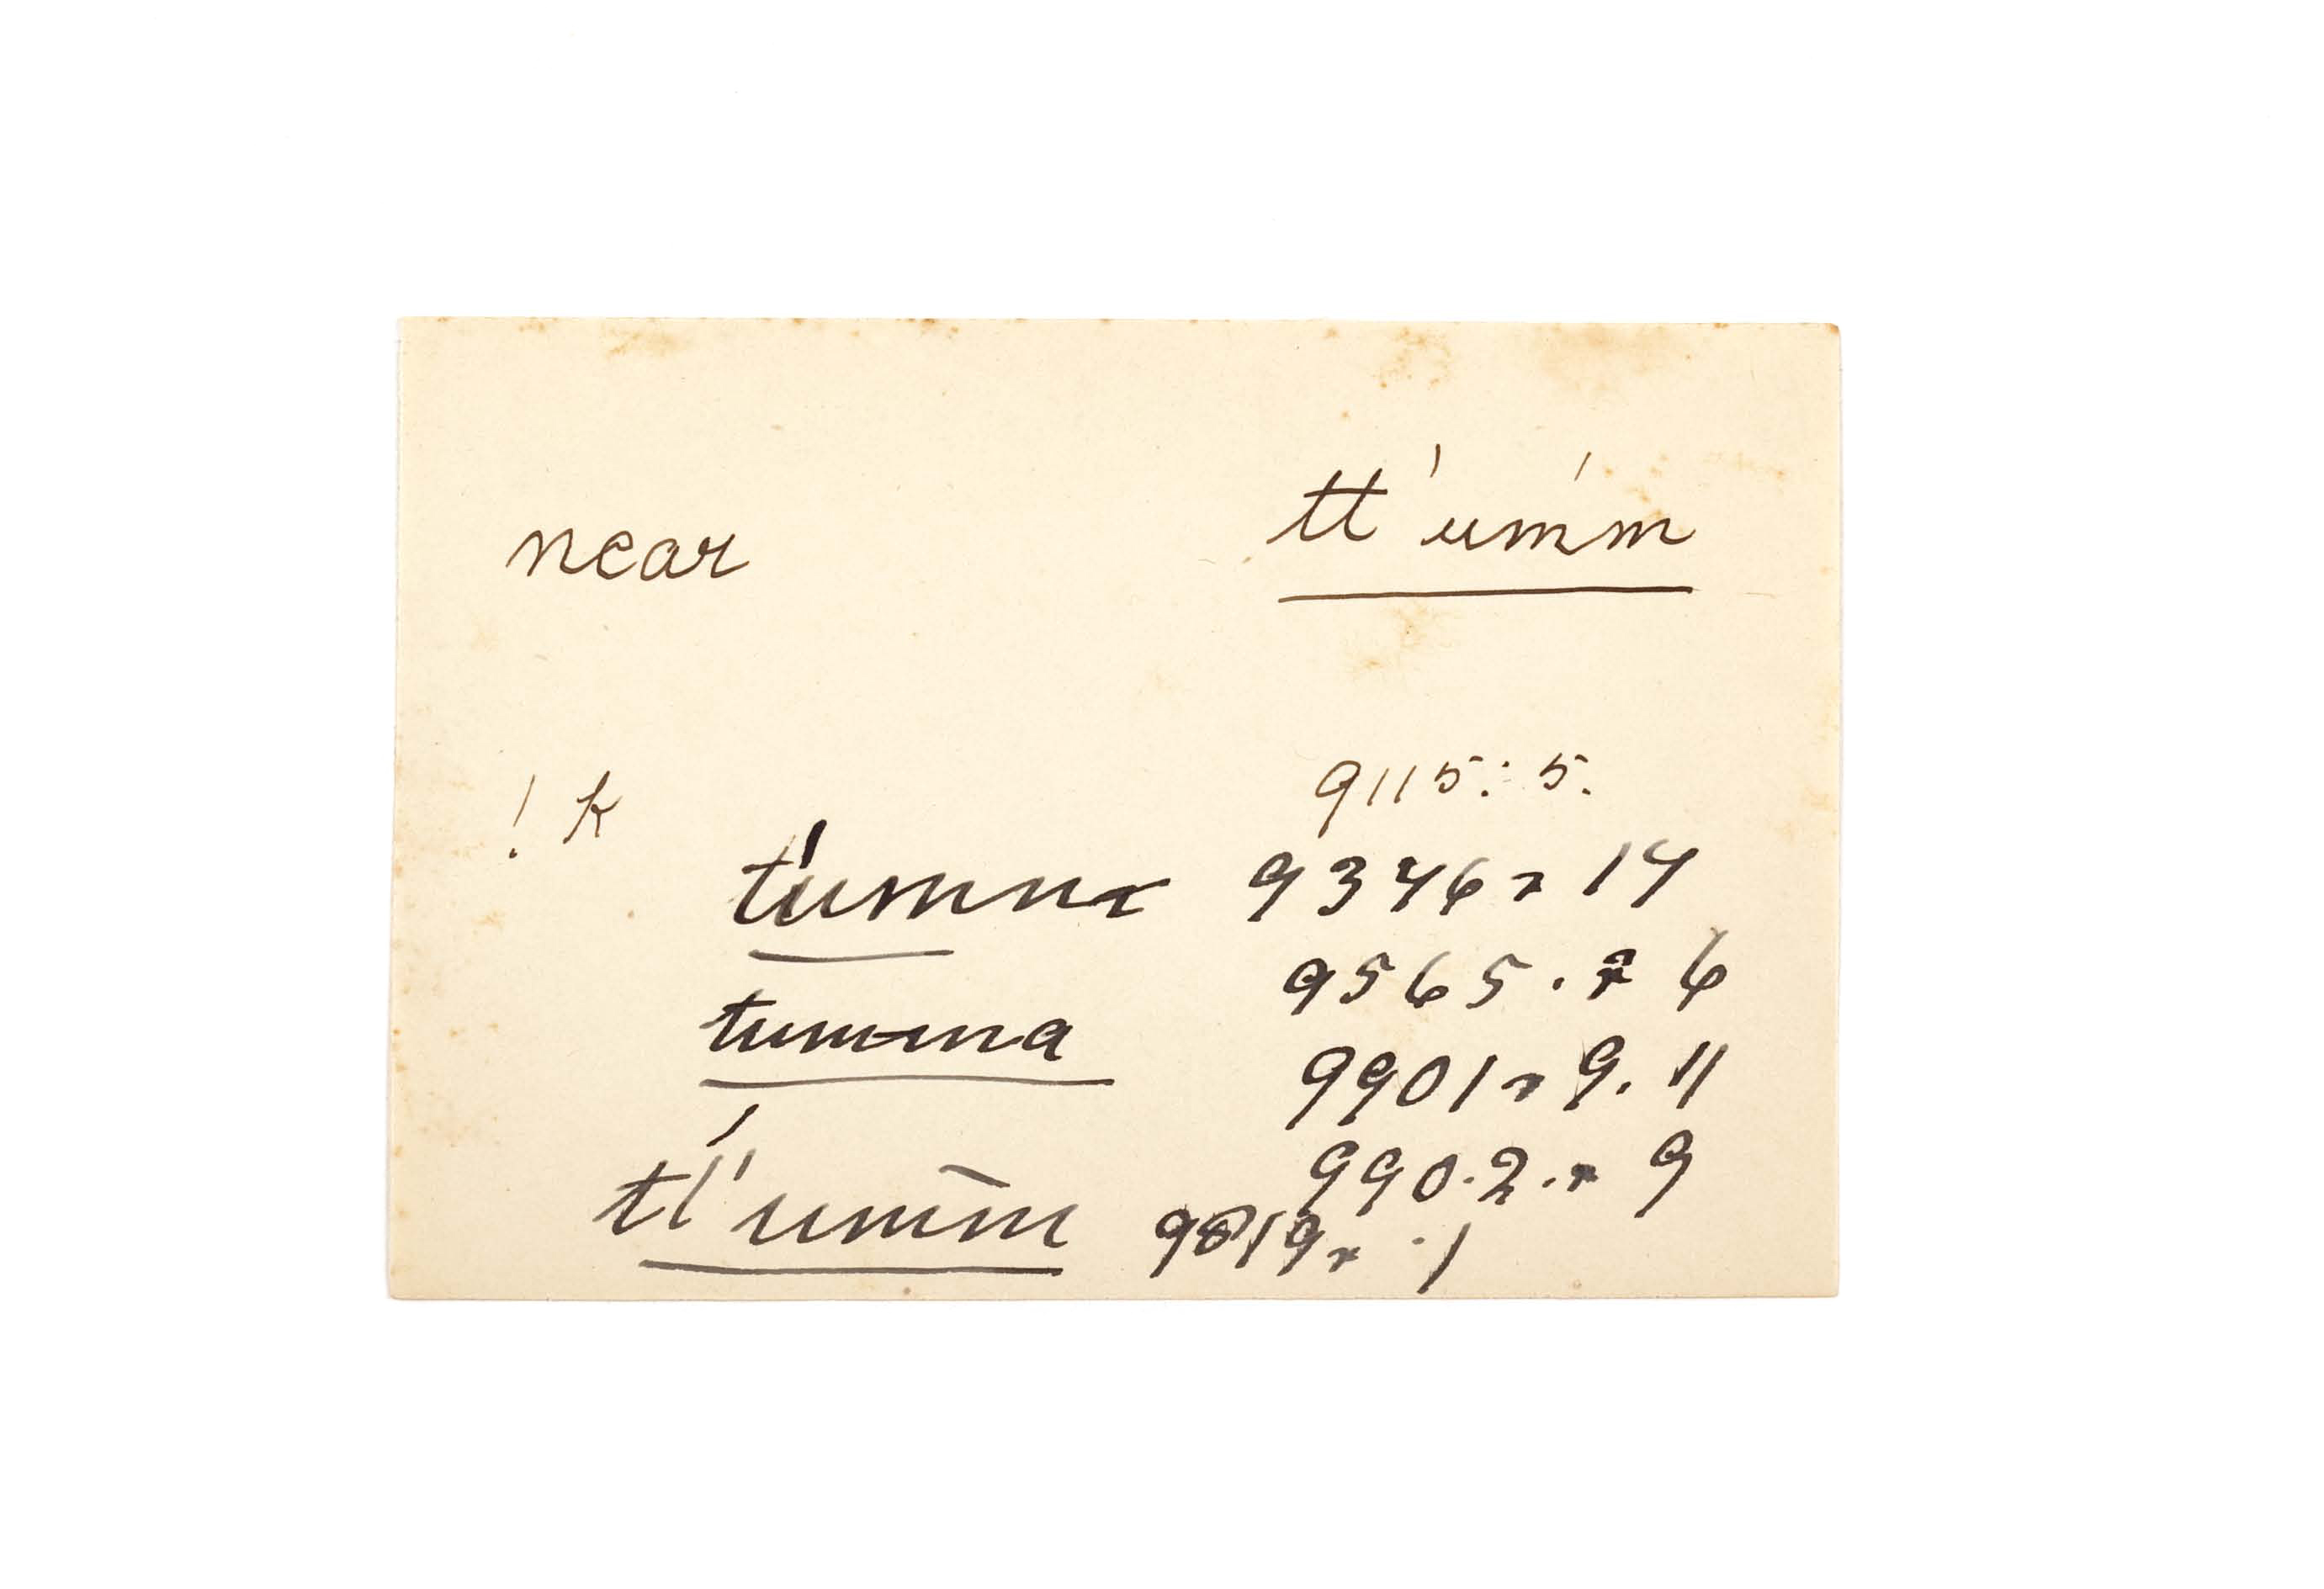 near tt'um'm
9115: 5.
! k
t'umm 9346 14
9565. 6
tumma
9901 9. 11
990.2. 9
tl'umm 9819 1